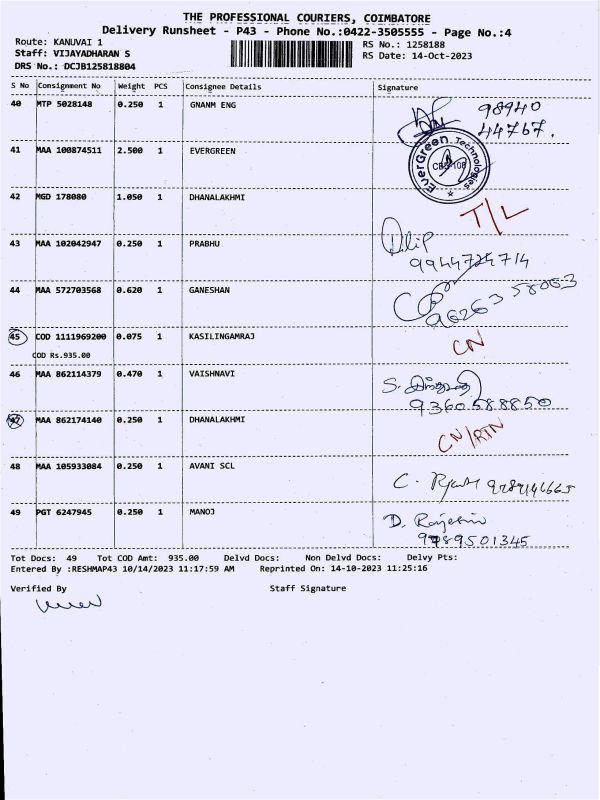 THE PROFESSIONAL COURIERS, COIMBATORE
Delivery Runsheet - P43 - Phone No.:0422-3505555 - Page No.:4
Route: KANUVAI 1
Staff: VIJAYADHARAN S
DRS No.: DCJB125818804
RS No.: 1258188
RS Date: 14-Oct-2023
S No Consignment No Weight PCS Consignee Details Signature
40 MTP 5028148 0.250 1 GNANM ENG 98940
44767.
41 MAA 100874511 2.500 1 EVERGREEN EverGreen Technologies CBE-108
42 MGD 178080 1.050 1 DHANALAKHMI T/L
43 MAA 102042947 0.250 1 PRABHU Dilip
9944724714
44 MAA 572703568 0.620 1 GANESHAN
45 COD 1111969200 0.075 1 KASILINGAMRAJ CN
COD Rs.935.00
46 MAA 862114379 0.470 1 VAISHNAVI S.
9360588850
47 MAA 862174140 0.250 1 DHANALAKHMI CN/RTN
48 MAA 105933084 0.250 1 AVANI SCL C.
49 PGT 6247945 0.250 1 MANOJ D.
9789501345
Tot Docs: 49 Tot COD Amt: 935.00 Delvd Docs: Non Delvd Docs: Delvy Pts:
Entered By :RESHMAP43 10/14/2023 11:17:59 AM Reprinted On: 14-10-2023 11:25:16
Verified By Staff Signature